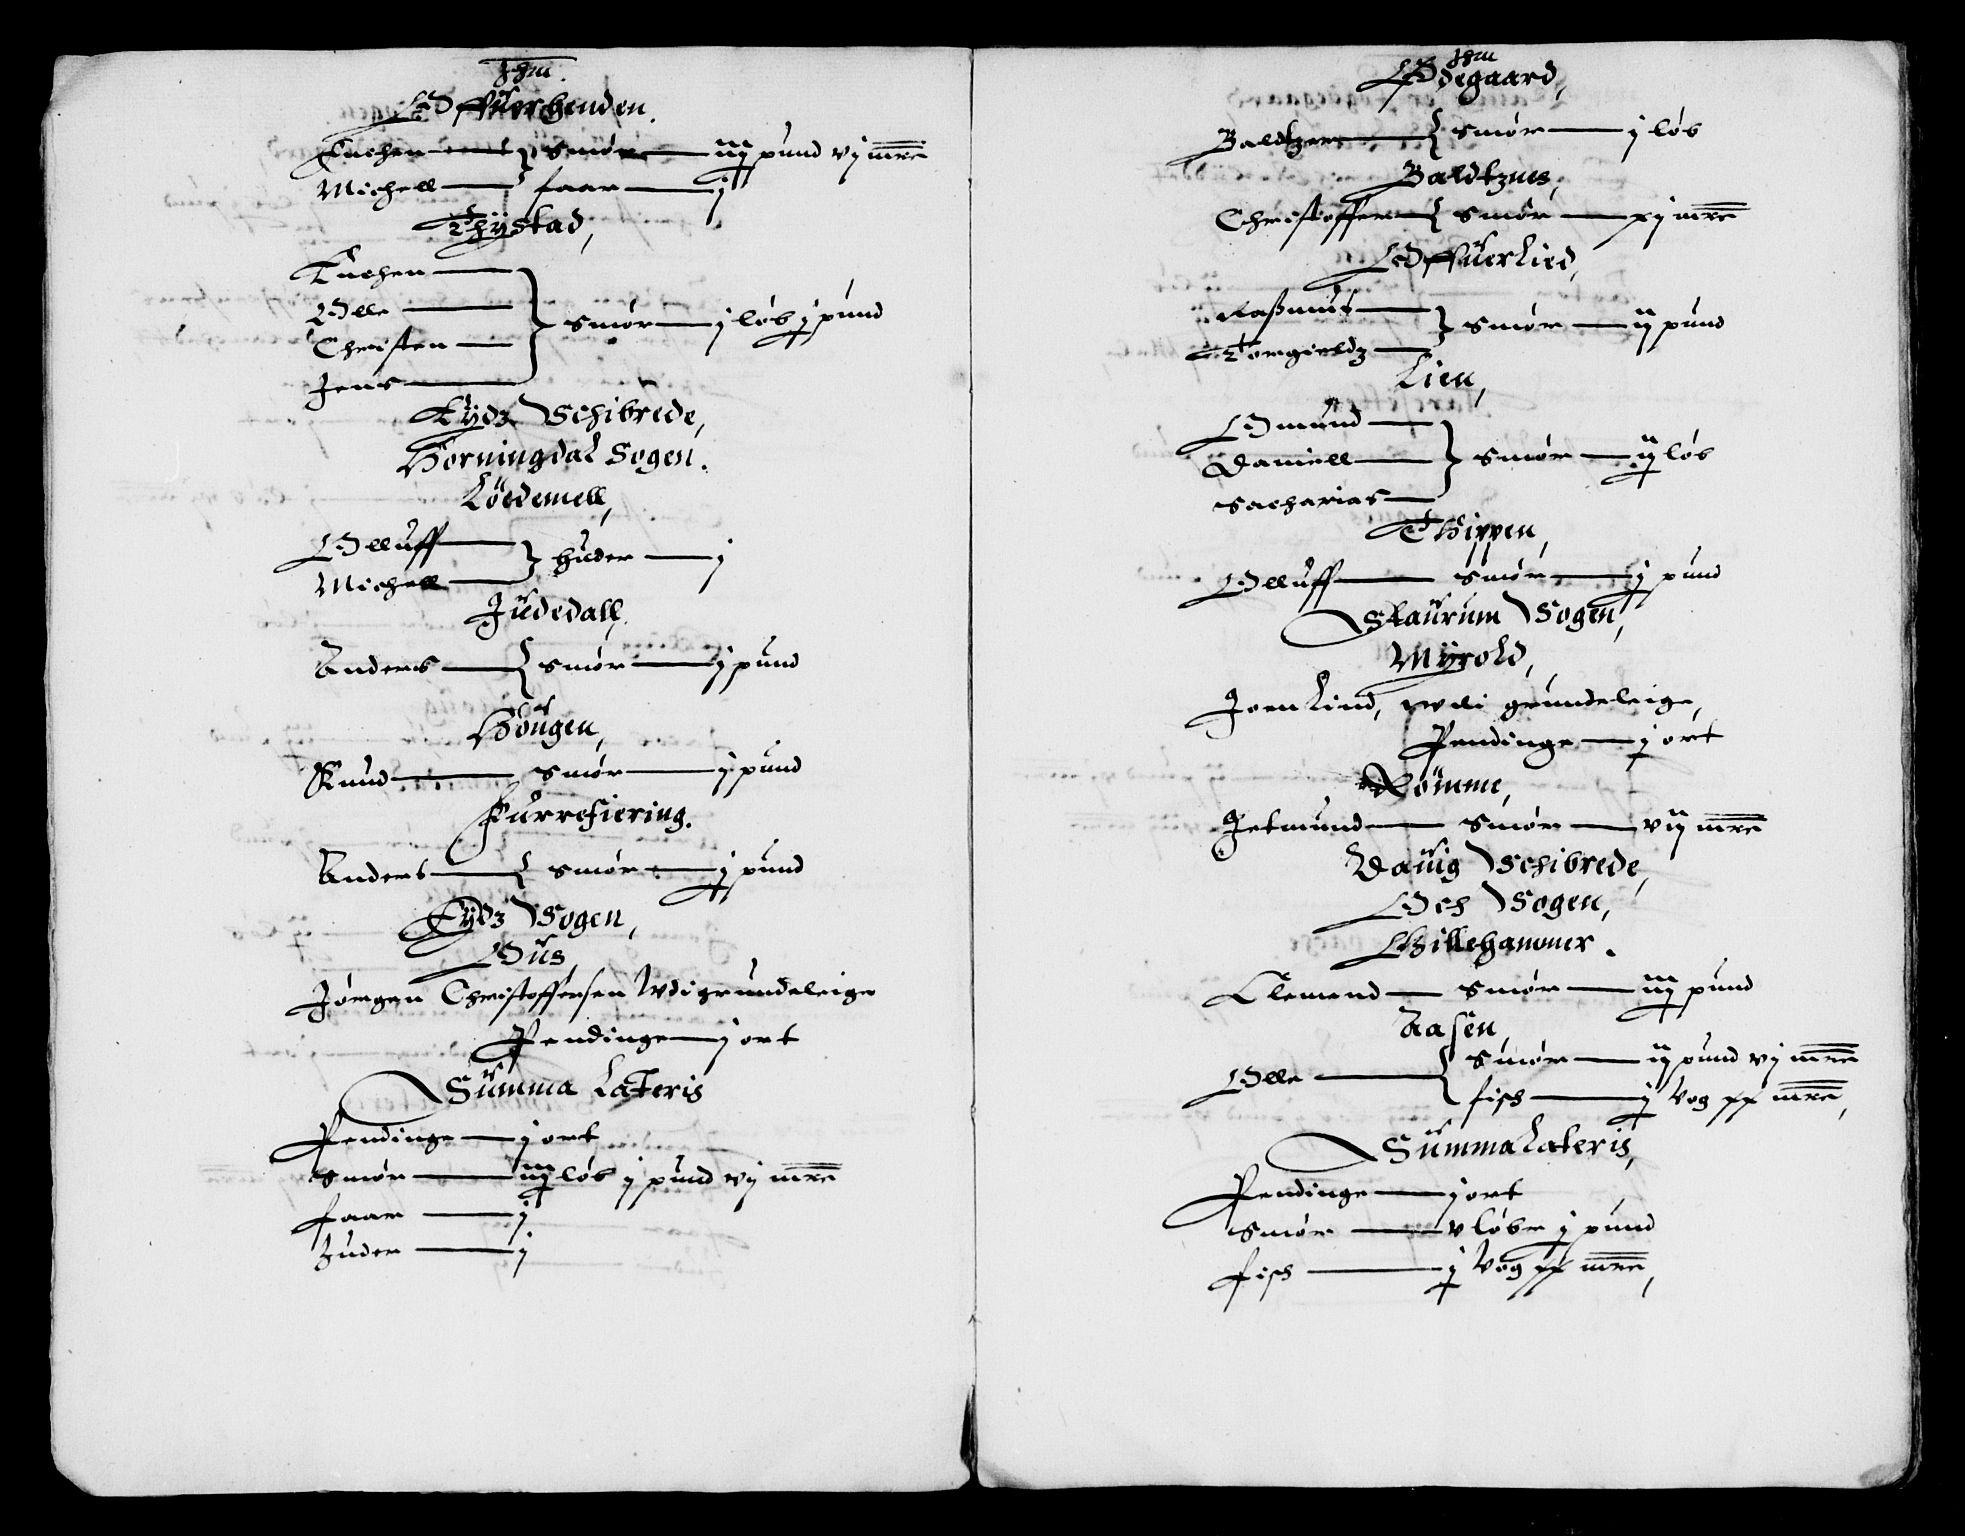 Jhm.
Offuerhenden.
Enchen — smør — iij pund vj mrc
Michell — faar — j
Thÿstad,
Enchen —
Olle —
Christen —
Jens — smør — j løb j pund
Eÿdz Schibrede,
Horningdal Sogen.
Lødemell,
Olluff —
Michell — huder — j
Jüdedall,
Anders — smør — j pund
Høugen,
Knud — smør — j pund
Furrefiering.
Anders — smør — j pund
Eÿdz Sogen,
Hüs
Jørgen Christoffersen Vdi grundeleige
Pendinge — j ort
Summa Lateris
Pendinge — j ort
Smør — iij løb j pund vj mrc
faar — j
Huder — j
Jhm
Ødegaard,
Baldtzer — smør — j løb
Baldtznes,
Christoffer — smør — xj mrc
Offuerlied,
Rasmus —
Torgieldz — smør — ij pund
Lien,
Omund —
Daniell —
Sacharias — smør — ij løb
Thippen,
Olluff — smør — j pund
Staurum Sogen,
Mÿrold,
Joen Lind, vdi grundeleige,
Pendinge — j ort
Rømme,
Jetmund — smør — vij mrc
Dauig Schibrede,
Och Sogen,
Hillehammer.
Clemend — smør — iij pund
Aasen
Olle — Smør — ij pund vj mrc
fisch — j Vog xx mrc,
Summa Lateris,
Pendinge — j ort
Smør — v løbe j pund
fisch — j Vog xx mrc,